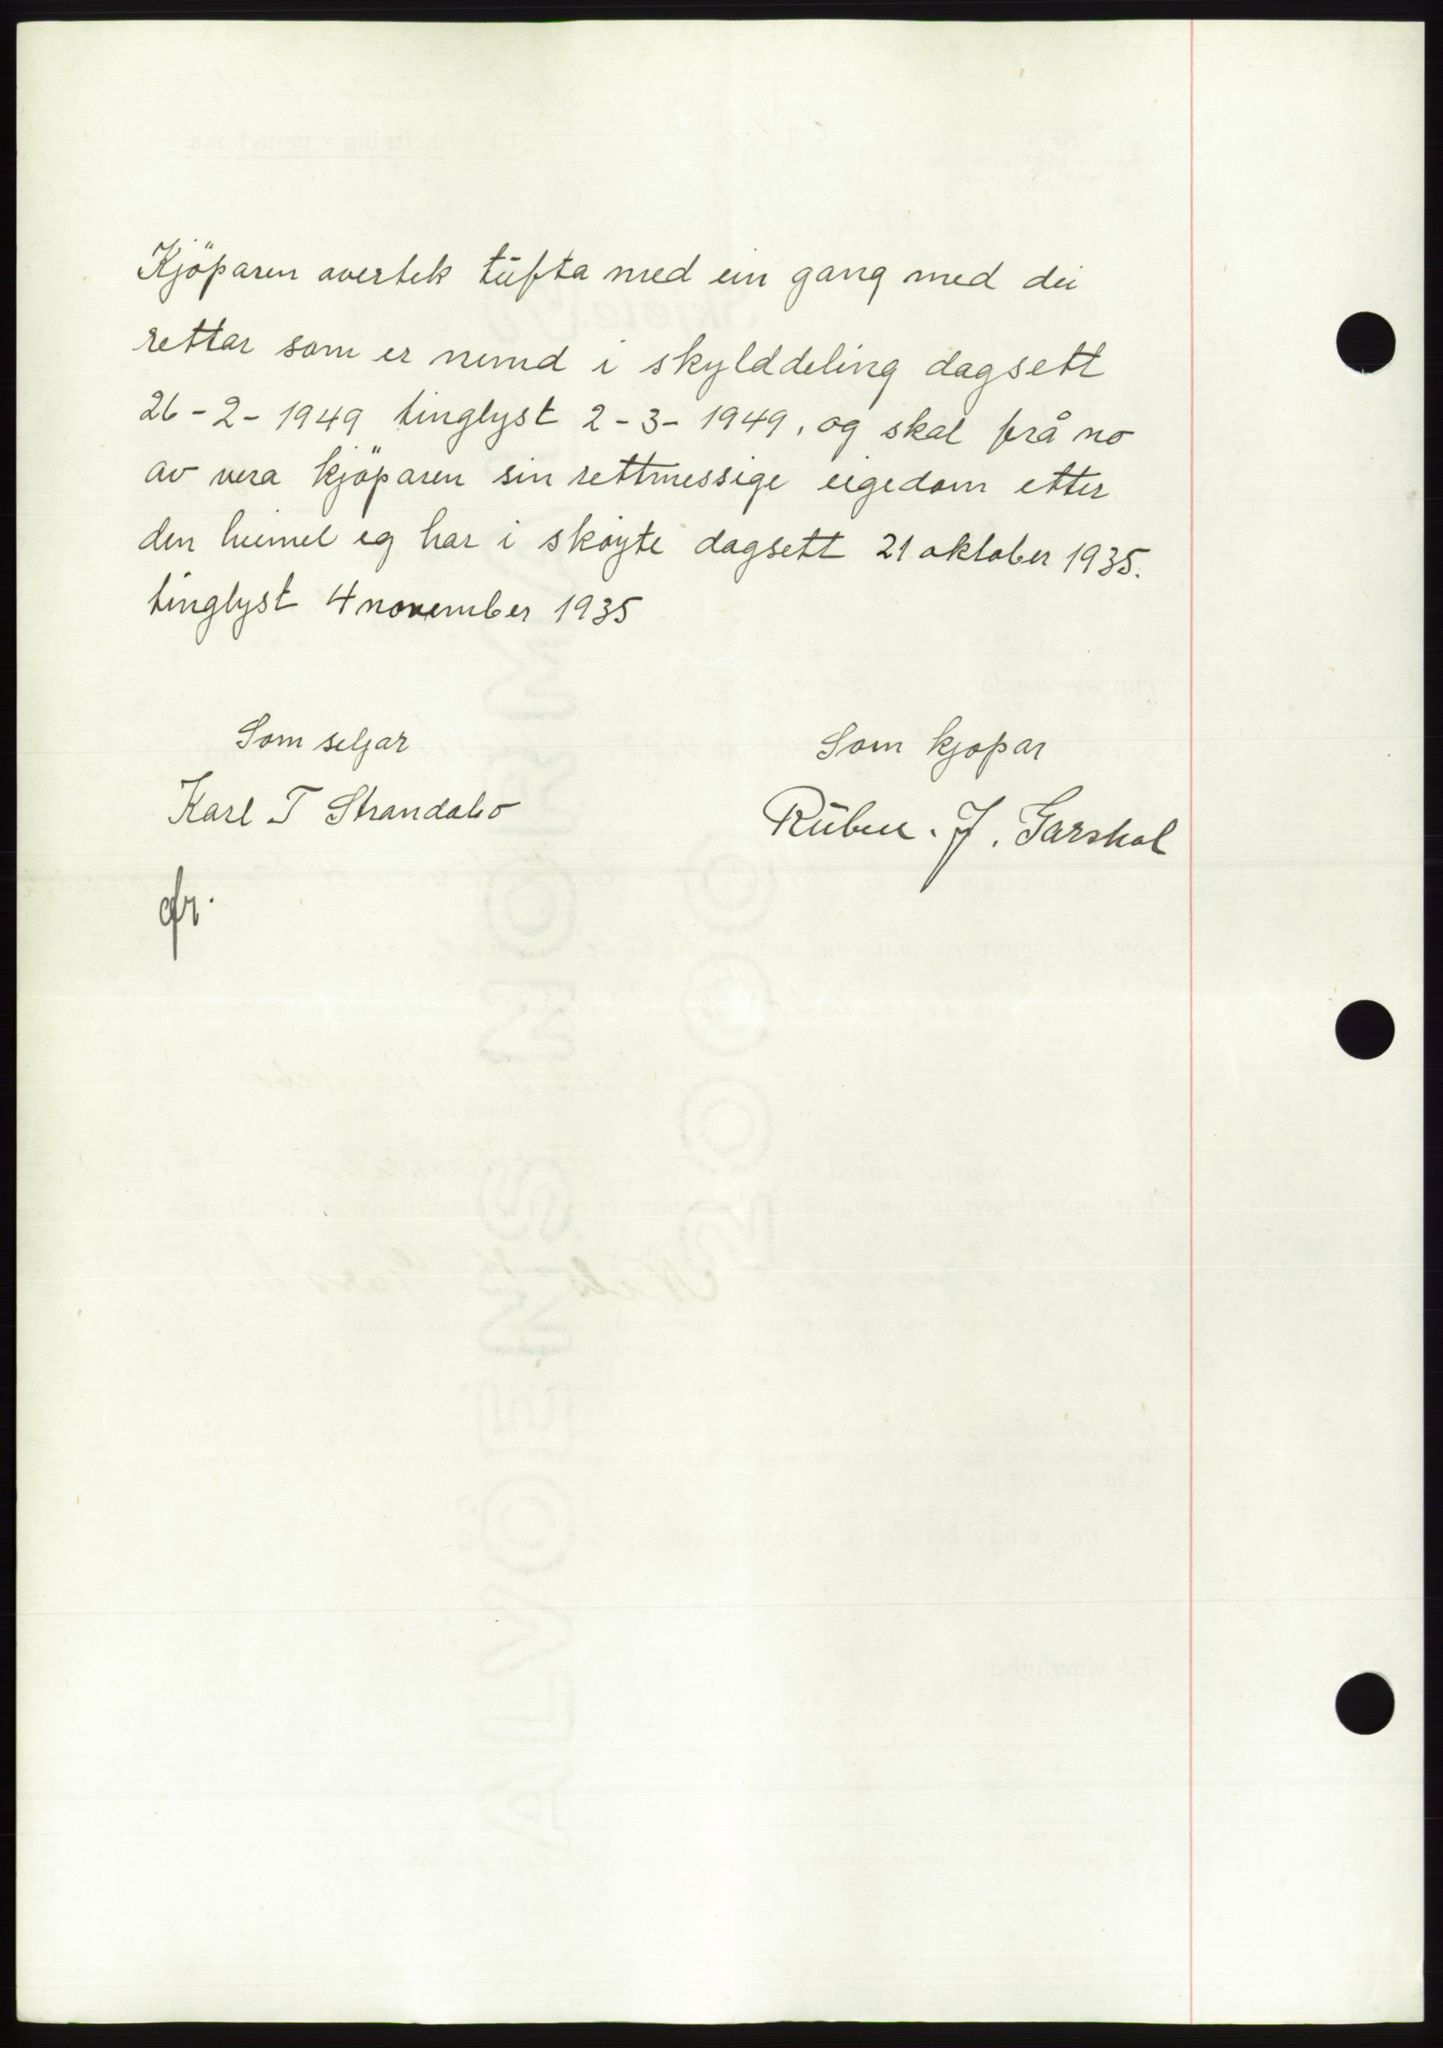 Kjöparen overtek tufta med ein gang med dei
rettar som er nemd i skylddeling dagsett
26-2-1949 tinglyst 2-3-1949, og skal frå no
av vera kjöparen sin rettmessige eigedom etter
den heimel eg har i skøyte dagsett 21 oktober 1935.
tinglyst 4 november 1935
Som seljar
Som kjøpar
Karl T Strandabo
Rüben. J. Garshol